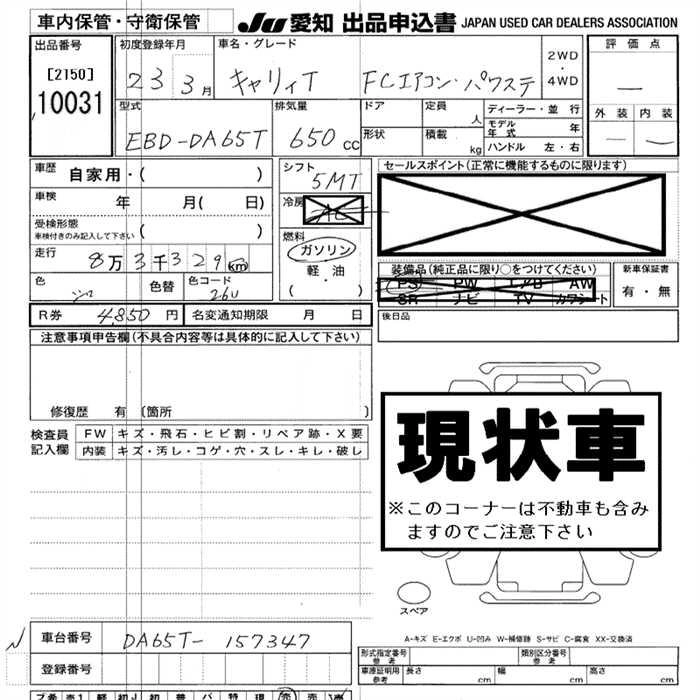 車内保管・守衛保管 JU 愛知 出品申込書 JAPAN USED CAR DEALERS ASSOCIATION
出品番号 初度登録年月 車名・グレード 2WD・4WD 評価点
[2150] 23 3月 キャリィT FCエアコン・パワステ
10031
型式 排気量 ドア 定員 人 ディーラー・並行 外装 内装
EBD-DA65T 650cc 形状 積載 kg モデル年式 年
ハンドル 左・右
車歴 自家用・( ) シフト 5MT セールスポイント(正常に機能するものに限ります)
車検 年 月( 日) 冷房 AC
受検形態 ( )
車検付きのみ記入して下さい
燃料 ガソリン
走行 8万3千329km 軽油
・( )
装備品(純正品に限り○をつけてください) 新車保証書
PS PW エアB AW 有・無
SR ナビ TV カワシート
色 シロ 色替 色コード 26U
R券 4,850円 名変通知期限 月 日 後日品
注意事項申告欄(不具合内容等は具体的に記入して下さい)
修復歴 有 〔箇所 〕
検査員 FW キズ・飛石・ヒビ割・リペア跡・X要
記入欄 内装 キズ・汚レ・コゲ・穴・スレ・キレ・破レ
現状車
※このコーナーは不動車も含み
ますのでご注意下さい
スペア
A-キズ E-エクボ U-凹み W-補修跡 S-サビ C-腐食 XX-交換済
車台番号 DA65T-157347
登録番号
型式指定番号 参考 類別区分番号 参考
車庫証明用 参考 長さ cm 幅 cm 高さ cm